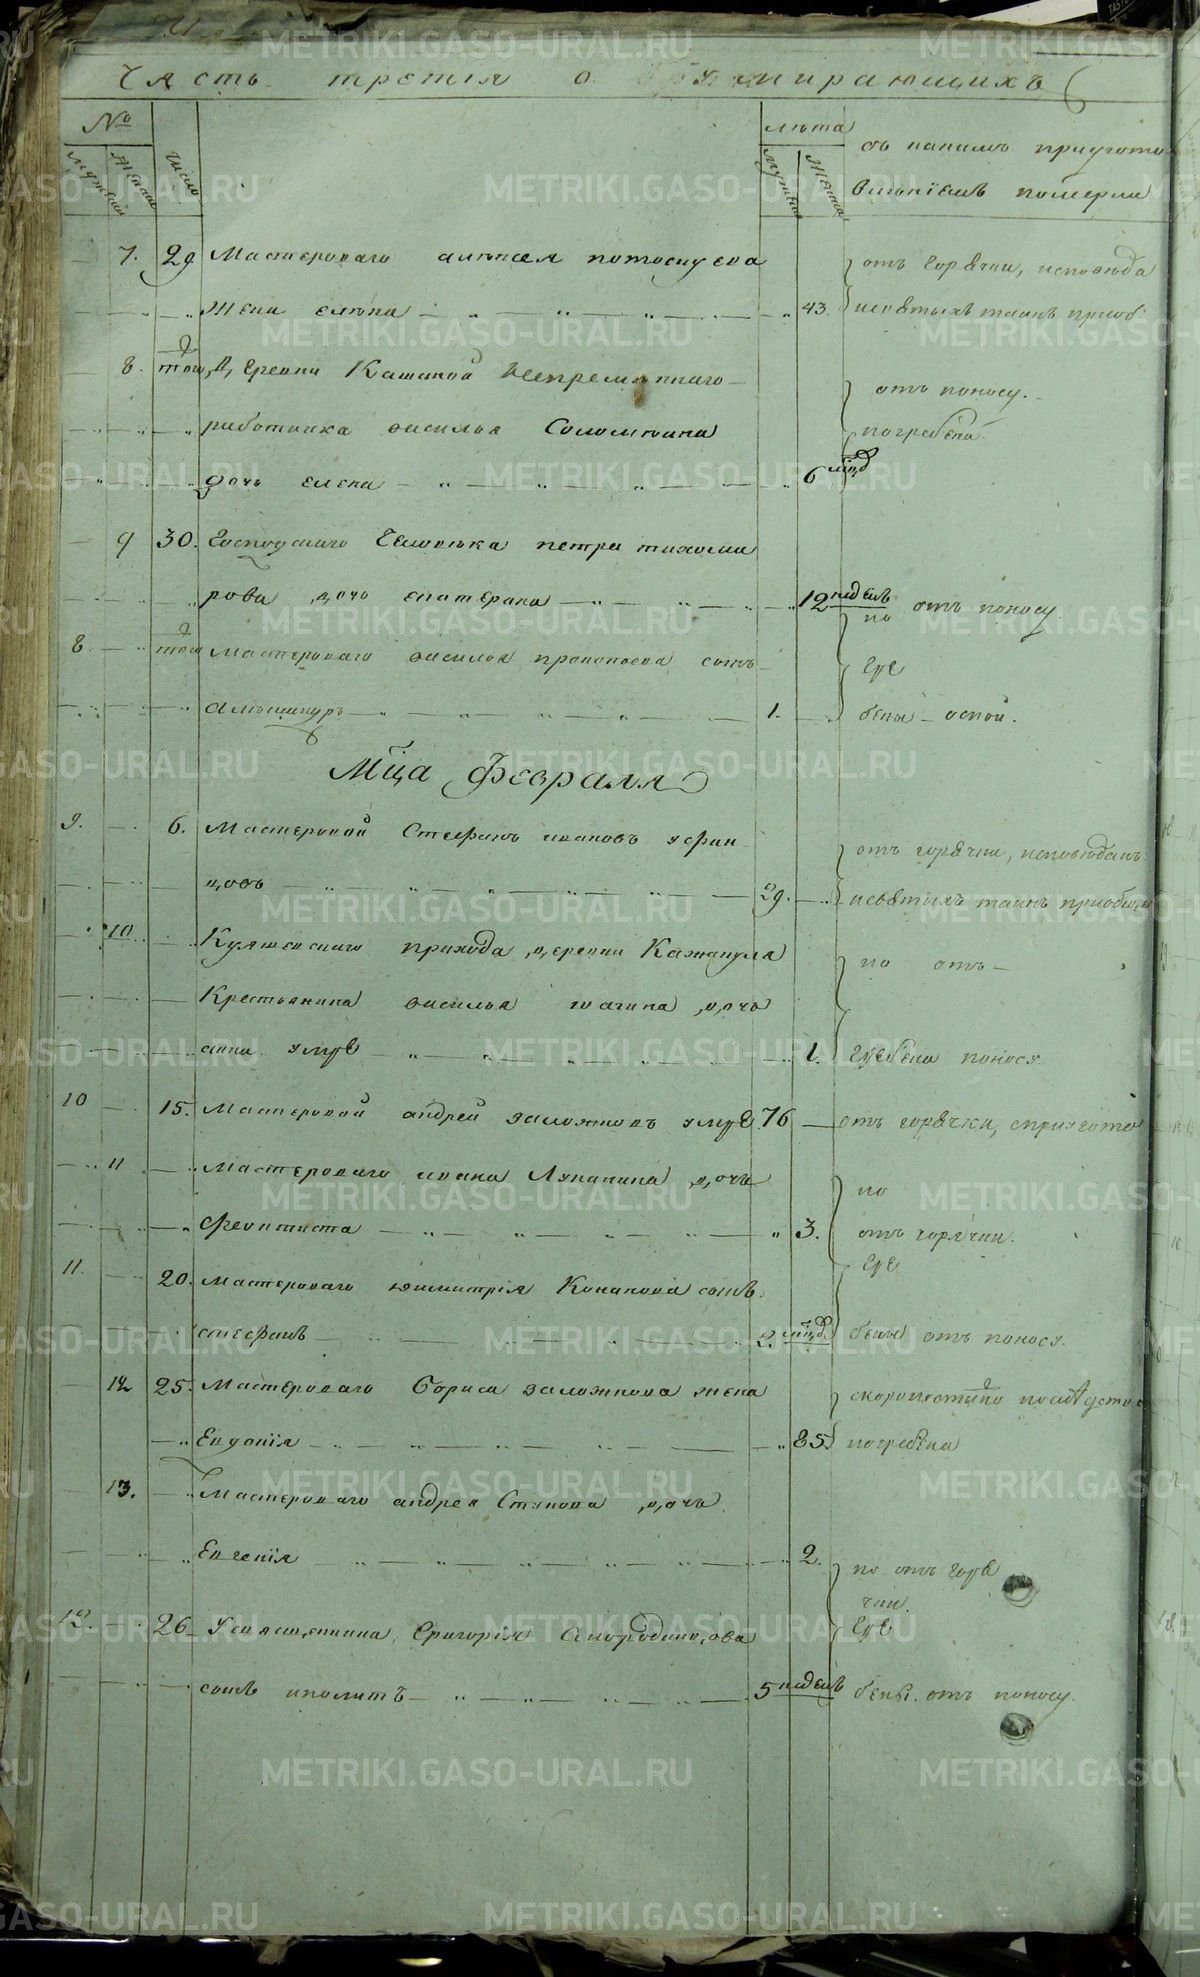 Часть третія о умирающихъ
№ лѣта
Мужескій Женскій Число Мужеск Женска съ какимъ пригото
вленіемъ померли
7. 29 Мастероваго алексея потоскуева отъ горячки, исповѣда
жена елена 43. и святыхъ таинъ приоб
8. того Деревни Кашиной непремѣннаго отъ поносу.
работника василья Соломеина погребена
дочь елена 6 мцд
9 30. Господскаго человѣка петра тихоми
рова дочь екатерина 12 недель отъ поносу
8. того Мастероваго василья прокопьева сынъ по
гре
1. бены оспой.
Мца Февраля
9. 6. Мастеровой Стефанъ ивановъ уфин отъ горячки, исповѣданъ
цовъ 29. и святыхъ таинъ приобще
10. прихода деревни по отъ
Крестьянина василья дочь
анна умре 1. гребена поносу
10 15. Мастеровой андрей заложновъ умре 76 отъ горячки, с пригото
11 Мастероваго ивана Лупанина дочь по
Феоктиста 3. отъ горячки.
11. 20. Мастероваго димитрія Конапова сынъ гре
стефанъ 2. мцд. бены отъ поносу.
12 25. Мастероваго Бориса заложнова жена скоропостижно
Евдокія 85 погребена
13. Мастероваго андрея Стукова дочь
Евгенія 2. по отъ горя
чки.
12. 26 Григорія Смородинцова гре
сынъ иполитъ 5 недель бены. отъ поносу.
METRIKI.GASO-URAL.RU